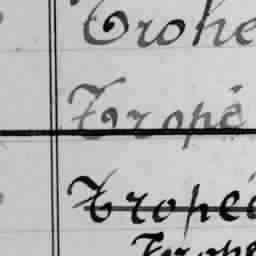 Trohe
Tropé
Tropéo
Trope